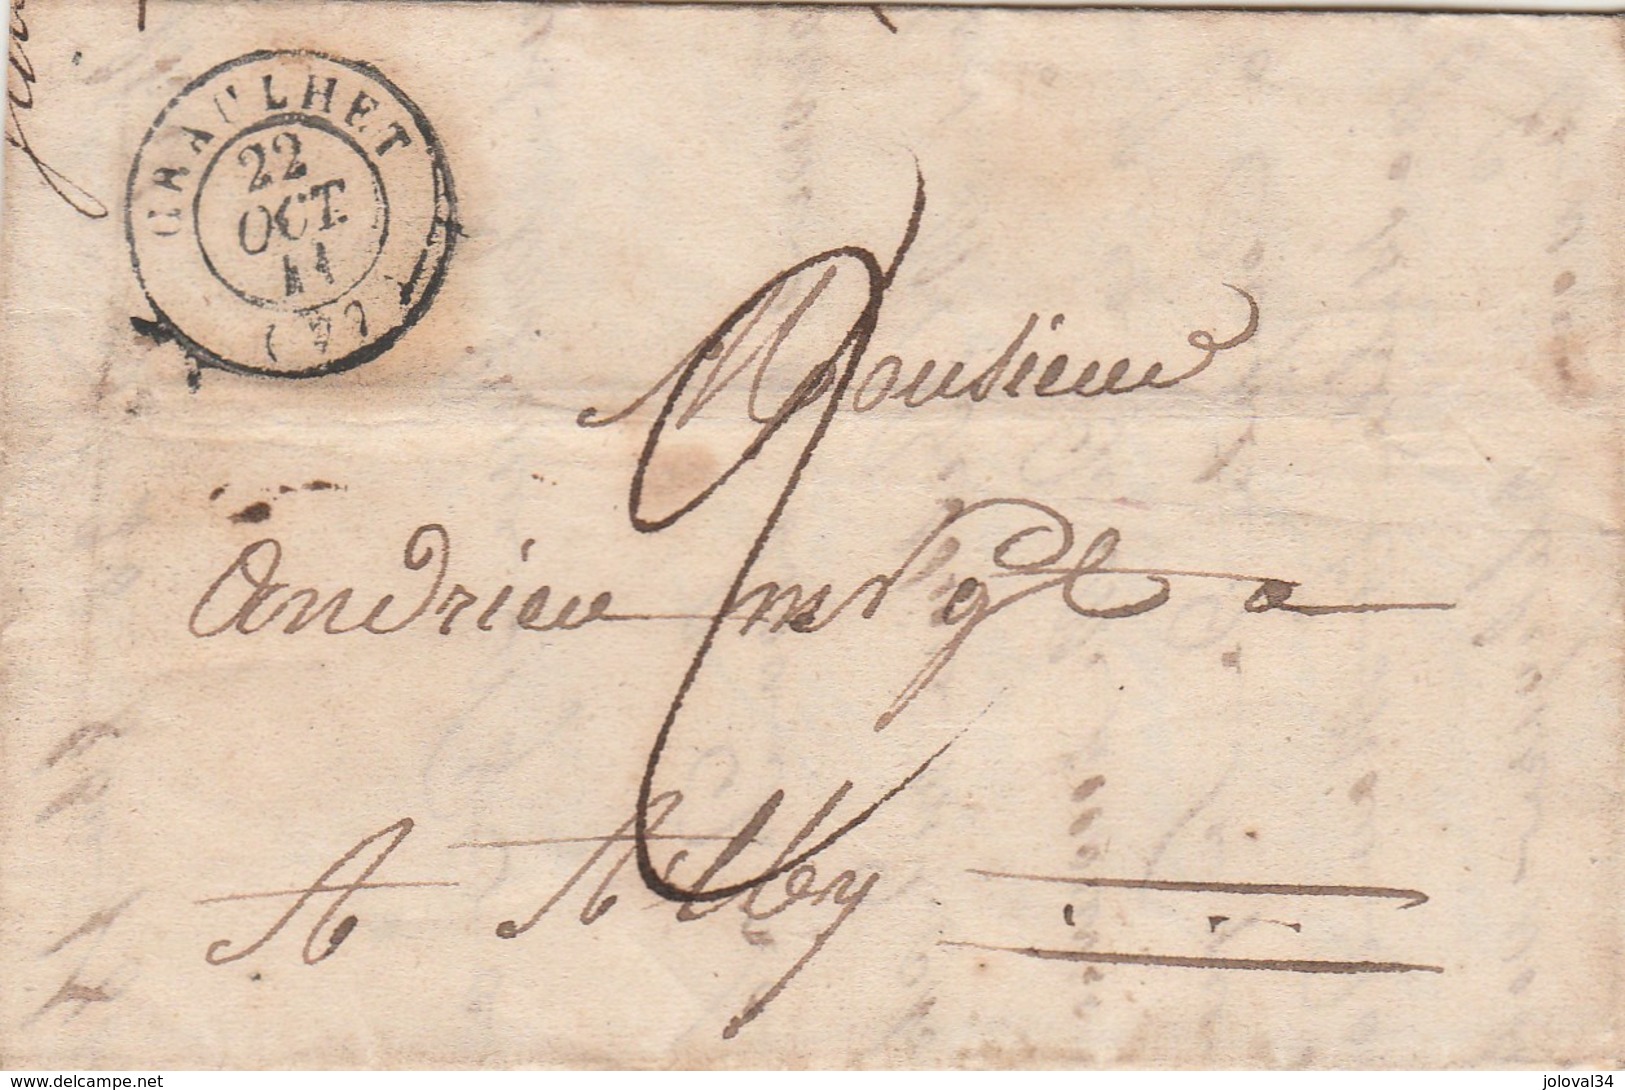 GRAULHET
22
OCT.
41
(77)
2
Monsieur
Andrieu md a
A Alby
www.delcampe.net
joloval34